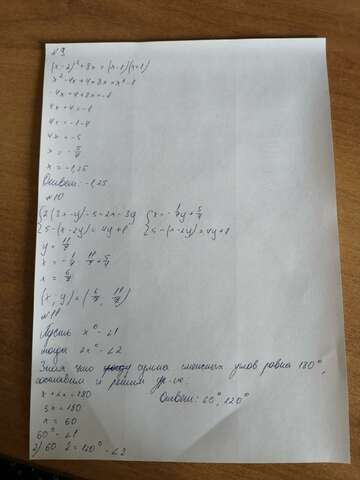 №9
(x-2)²+8x=(x-1)(x+1)
x²-4x+4+8x=x²-1
-4x+4+8x=-1
4x+4=-1
4x=-1-4
4x=-5
x=-5/4
x=-1,25
Ответ: -1,25
№10
{2(3x-y)-5=2x-3y {x=-1/4y+5/4
{5-(x-2y)=4y+1 {5-(x-2y)=4y+1
x=
(x, y)=
№11
Пусть x°-∠1
тогда 2x°-∠2
Зная что сумма смежных углов равна 180°,
составим и решим ур-ие.
x+2x=180 Ответ: 60°, 120°
3x=180
x=60
60°-∠1
2) 60·2=120°-∠2